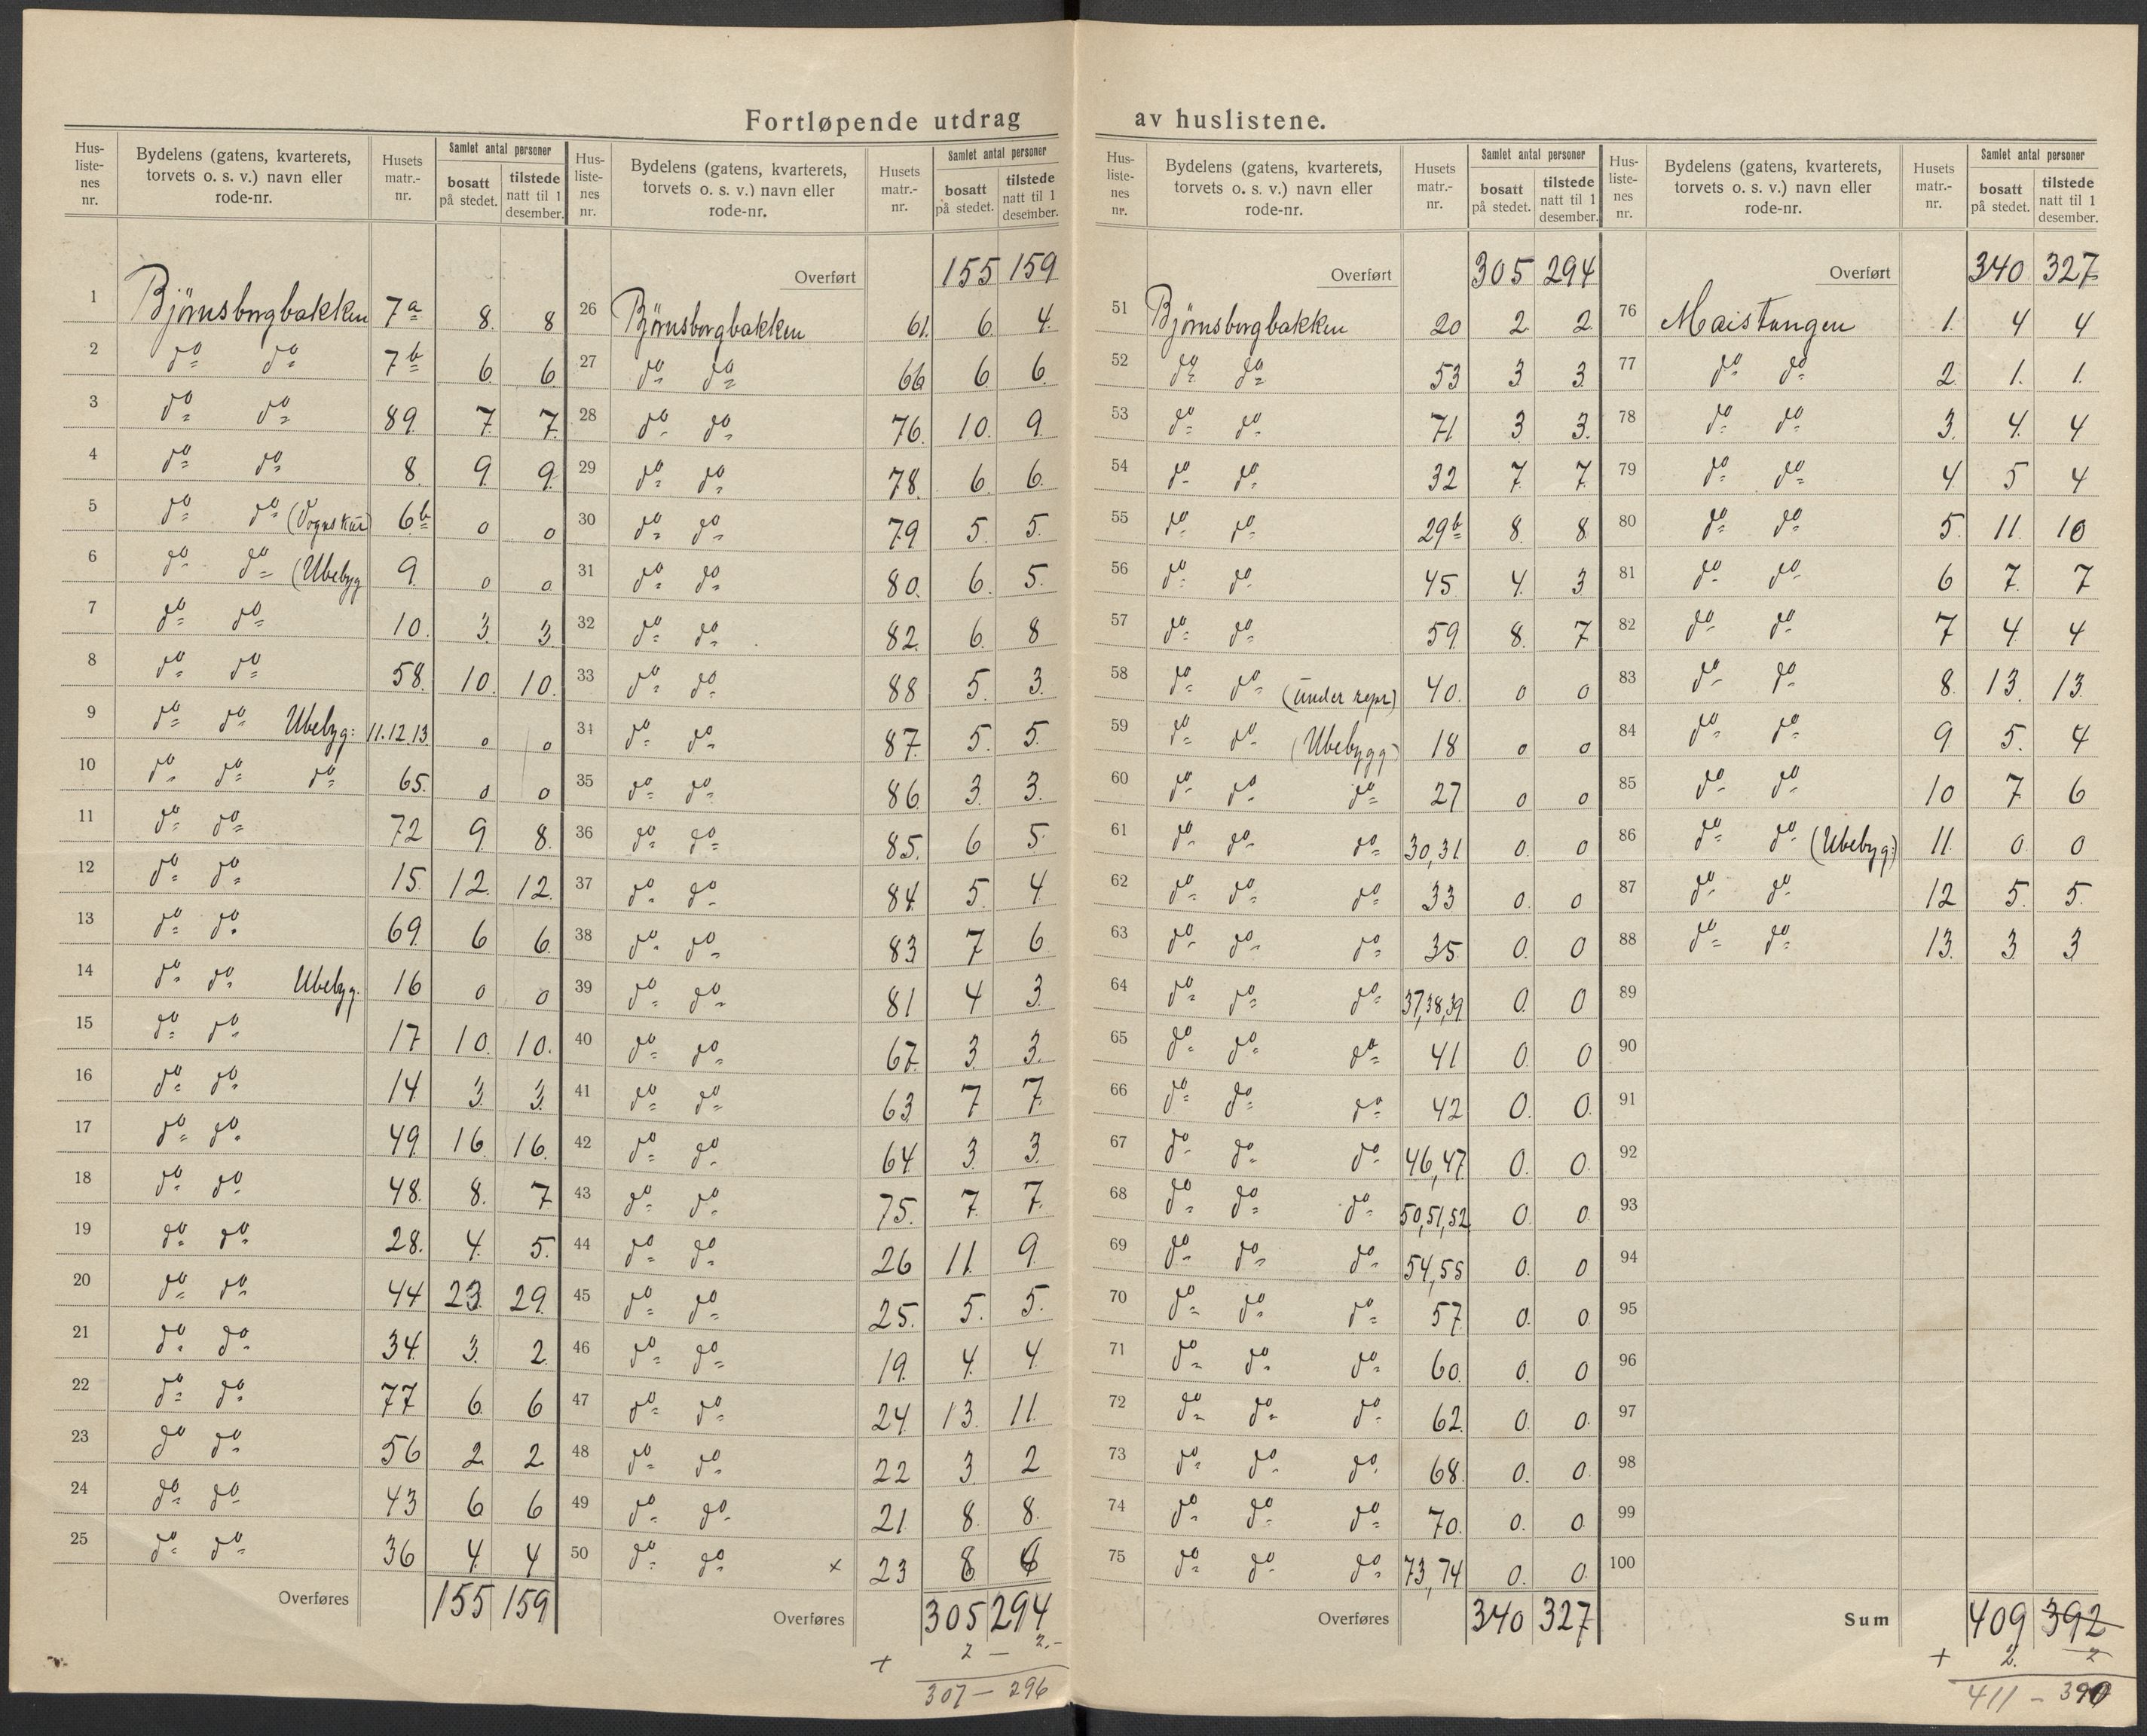 Fortløpende utdrag av huslistene.
Hus-listenes nr. | Bydelens (gatens, kvarterets, torvets o. s. v.) navn eller rode-nr. | Husets matr.-nr. | Samlet antal personer bosatt på stedet. | tilstede natt til 1 desember.
1 Bjørnsborgbakken 7a 8. 8
2 do do 7b 6. 6
3 do do 89. 7. 7.
4 do do 8. 9. 9.
5 do do (Vognskur) 6b 0 0
6 do do (Ubebyg 9. 0 0
7 do do 10. 3. 3.
8 do do 58. 10. 10.
9 do do Ubebyg: 11.12.13. 0 0
10 do do do 65. 0 0
11 do do 72 9. 8.
12 do do 15. 12. 12.
13 do do 69. 6 6.
14 do do Ubebyg. 16 0 0
15 do do 17 10. 10.
16 do do 14 3. 3.
17 do do 49. 16. 16.
18 do do 48. 8. 7
19 do do 28. 4. 5.
20 do do 44 23. 29.
21 do do 34. 3. 2.
22 do do 77 6. 6
23 do do 56 2. 2.
24 do do 43 6 6
25 do do 36 4. 4
Overføres 155 159
Hus-listenes nr. | Bydelens (gatens, kvarterets, torvets o. s. v.) navn eller rode-nr. | Husets matr.-nr. | Samlet antal personer bosatt på stedet. | tilstede natt til 1 desember.
Overført 155 159
26 Bjørnsborgbakken 61. 6. 4.
27 do do 66 6. 6.
28 do do 76. 10. 9.
29 do do 78. 6. 6.
30 do do 79 5. 5.
31 do do 80. 6. 5.
32 do do 82. 6. 8
33 do do 88 5. 3.
34 do do 87. 5. 5.
35 do do 86 3. 3.
36 do do 85. 6 5.
37 do do 84. 5. 4.
38 do do 83 7 6.
39 do do 81 4 3.
40 do do 67. 3. 3.
41 do do 63 7 7.
42 do do 64. 3. 3.
43 do do 75. 7. 7.
44 do do 26 11. 9.
45 do do 25. 5. 5.
46 do do 19. 4. 4.
47 do do 24 13. 11.
48 do do 22 3 2
49 do do 21 8. 8.
50 do do × 23 8 6
Overføres 305 294
+ 2 – 2.-
307 – 296
Hus-listenes nr. | Bydelens (gatens, kvarterets, torvets o. s. v.) navn eller rode-nr. | Husets matr.-nr. | Samlet antal personer bosatt på stedet. | tilstede natt til 1 desember.
Overført 305 294
51 Bjørnsborgbakken 20 2. 2.
52 do do 53 3 3.
53 do do 71 3. 3.
54 do do 32 7. 7.
55 do do 29b 8. 8.
56 do do 45 4. 3
57 do do 59. 8. 7.
58 do do (under repr) 40. 0 0
59 do do (Ubebygg) 18 0 0
60 do do do 27 0 0
61 do do do 30,31 0. 0
62 do do do 33 0. 0
63 do do do 35. 0. 0
64 do do do 37,38,39 0. 0
65 do do do 41 0. 0
66 do do do 42 0. 0.
67 do do do 46,47. 0. 0.
68 do do do 50,51,52 0. 0.
69 do do do 54,55 0. 0
70 do do do 57. 0. 0
71 do do do 60. 0. 0
72 do do do 62. 0. 0.
73 do do do 68. 0. 0.
74 do do do 70. 0. 0
75 do do do 73,74 0. 0.
Overføres 340 327
Hus-listenes nr. | Bydelens (gatens, kvarterets, torvets o. s. v.) navn eller rode-nr. | Husets matr.-nr. | Samlet antal personer bosatt på stedet. | tilstede natt til 1 desember.
Overført 340 327
76 Maistangen 1. 4 4
77 do do 2. 1. 1.
78 do do 3. 4. 4
79 do do 4 5 4
80 do do 5. 11. 10
81 do do 6 7. 7
82 do do 7 4 4
83 do do 8. 13. 13.
84 do do 9 5. 4
85 do do 10 7. 6
86 do do (Ubebyg:) 11. 0. 0
87 do do 12 5. 5.
88 do do 13. 3 3
89
90
91
92
93
94
95
96
97
98
99
100
Sum 409 392
+ 2. 2
411 – 390